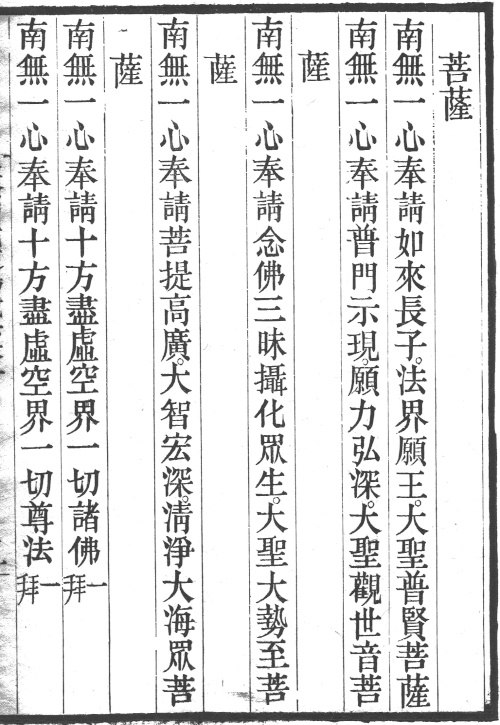 菩薩
南無一心奉請如來長子。法界願王。大聖普賢菩薩
南無一心奉請普門示現。願力弘深。大聖觀世音菩
薩
南無一心奉請念佛三昧攝化眾生。大聖大勢至菩
薩
南無一心奉請菩提高廣。大智宏深。清淨大海眾菩
薩
南無一心奉請十方盡虛空界一切諸佛一拜
南無一心奉請十方盡虛空界一切尊法一拜